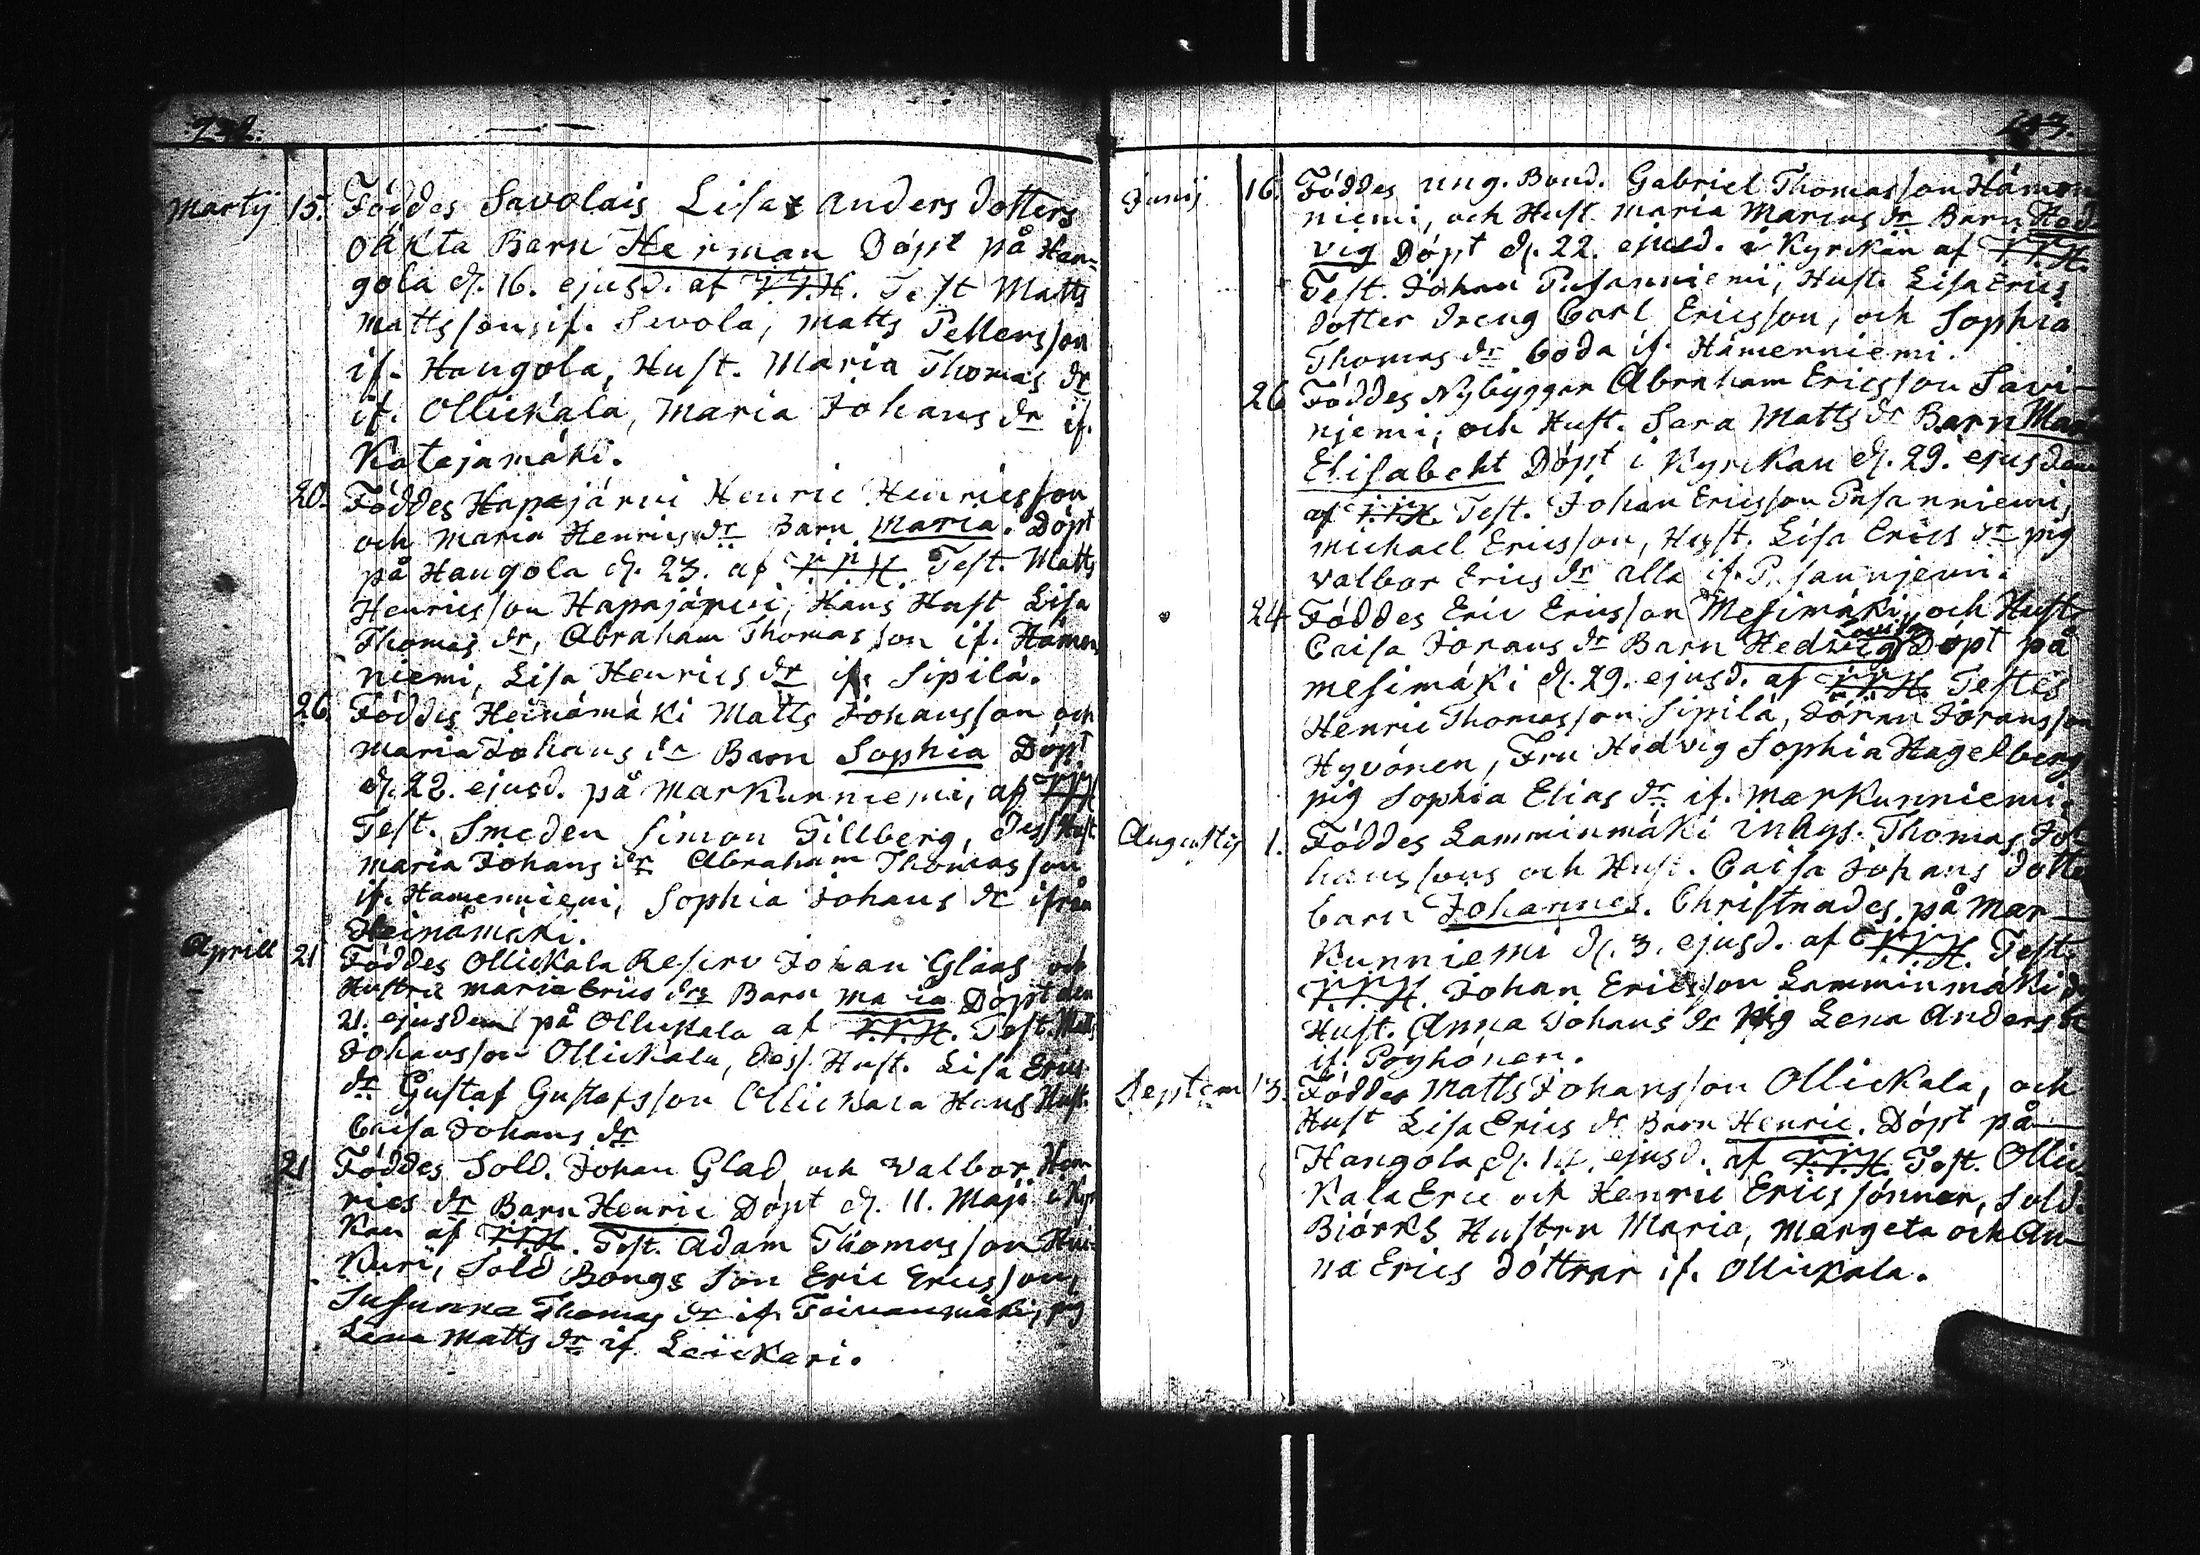 Martij 15. Föddes Savolais Lisa Anders dotters
oäkta Barn Herman Döpt på Han-
gola d. 16. ejusd. af Test Matts
Mattsson if. Sevola, Matts Pettersson
if. Hangola, Hust. Maria Thomas dr
if. Ollickala, Maria Johans dr if.
Katajamäki.
20. Föddes Hapajärvi Henric Henricsson
och Maria Henrics dr Barn Maria. Döpt
på Hangola d. 23. af Test. Matts
Henricsson Hapajärvi, Hans Hust Lisa
Thomas dr, Abraham Thomasson if. Hämen
niemi, Lisa Henrics dr if. Sipilä.
26. Föddes Heinämäki Matts Johansson och
Maria Johans dr Barn Sophia Döpt
d. 22. ejusd. på Markunniemi, af
Test. Smeden Simon Tillberg, dess Hust
Maria Johans dr Abraham Thomasson
if. Hamenniemi, Sophia Johans dr ifrån
Heinämäki.
Aprill 21 Föddes Ollickala Reserv Johan Glaas och
Hustru Maria Erics drs Barn Maria Döpt den
21. ejusdem på Ollickala af Test. Matts
Johansson Ollickala, dess Hust. Lisa Erics
dr Gustaf Gustafsson Ollickala Hans Hust.
Caisa Johans dr
21 Föddes Sold. Johan Glad och Valbor Hen
rics dr Barn Henric Döpt d. 11. Maji i Kyr
kan af Test. Adam Thomasson
Sold Bongs Son Eric Ericsson,
Susanna Thomas dr if. pig
Lena Matts dr if. Leickari.
Junij 16. Föddes ung. Bond. Gabriel Thomasson Hämen
niemi, och Hust. Maria Marcus dr Barn Hed
vig Döpt d. 22. ejusd. i Kyrckan af
Test. Johan Pusanniemi, Hust. Lisa Erics
dotter dreng Carl Ericsson, och Sophia
Thomas dr boda if. Hämenniemi.
26 Föddes Nybyggar Abraham Ericsson Savi-
niemi, och Hust. Sara Matts dr Barn Maria
Elisabeht Döpt i Kyrckan d. 29. ejusdem
af Test. Johan Ericsson Pusanniemi,
Michael Ericsson, Hust. Lisa Erics dr pig
Valbor Erics dr alla if. Pusanniemi.
24 Föddes Eric Ericsson Mesimäki, och Hust
Caisa Jörans dr Barn Hedvig Lovisa Döpt på
Mesimäki d. 29. ejusd. af Testes
Henric Thomasson Sipilä, Jöran Jöransson
Hyvönen, Fru Hedvig Sophia Hagelberg
pig Sophia Elias dr if. Markunniemi.
Augustij 1. Föddes Lamminmäki inhys. Thomas Jo-
hanssons och Hust. Caisa Johans dotte
barn Johannes. Christnades på Mar-
kunniemi d. 3. ejusd. af Test.
Johan Ericsson Lamminmäki
Hust. Anna Johans dr Pig Lena Anders dr
if. Pöyhönen.
Septem 13. Föddes Matts Johansson Ollickala, och
Hust Lisa Erics dr Barn Henric. Döpt på
Hangola d. 14. ejusd. af Test. Ollic
kala Eric och Henric Ericssönner, Sold.
Björks Hustru Maria, Margeta och An-
na Erics döttrar if. Ollickala.